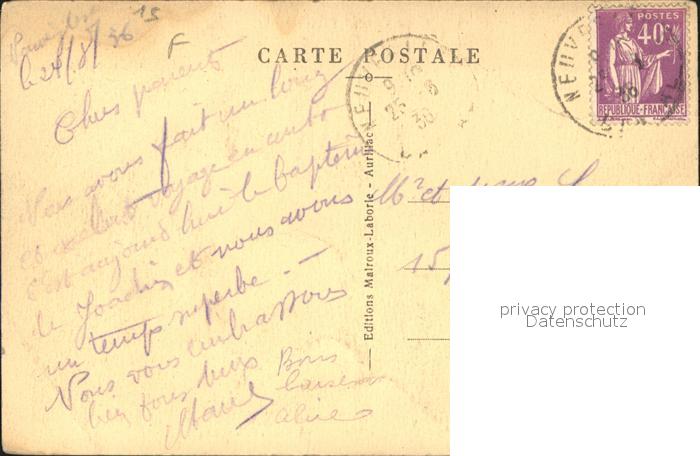 le 24/8/36
15
F
CARTE POSTALE
POSTES
40c
REPUBLIQUE FRANÇAISE
NEUV
Chers parents
Nous avons fait un long
et excellent voyage en auto
c'est aujourd'hui le baptême
de Joachim et nous avons
un temps superbe. —
Nous vous embrassons
bien tous deux
Bons
baisers
Aline
Mr et
15,
Editions Malroux-Laborie - Aurillac
privacy protection
Datenschutz